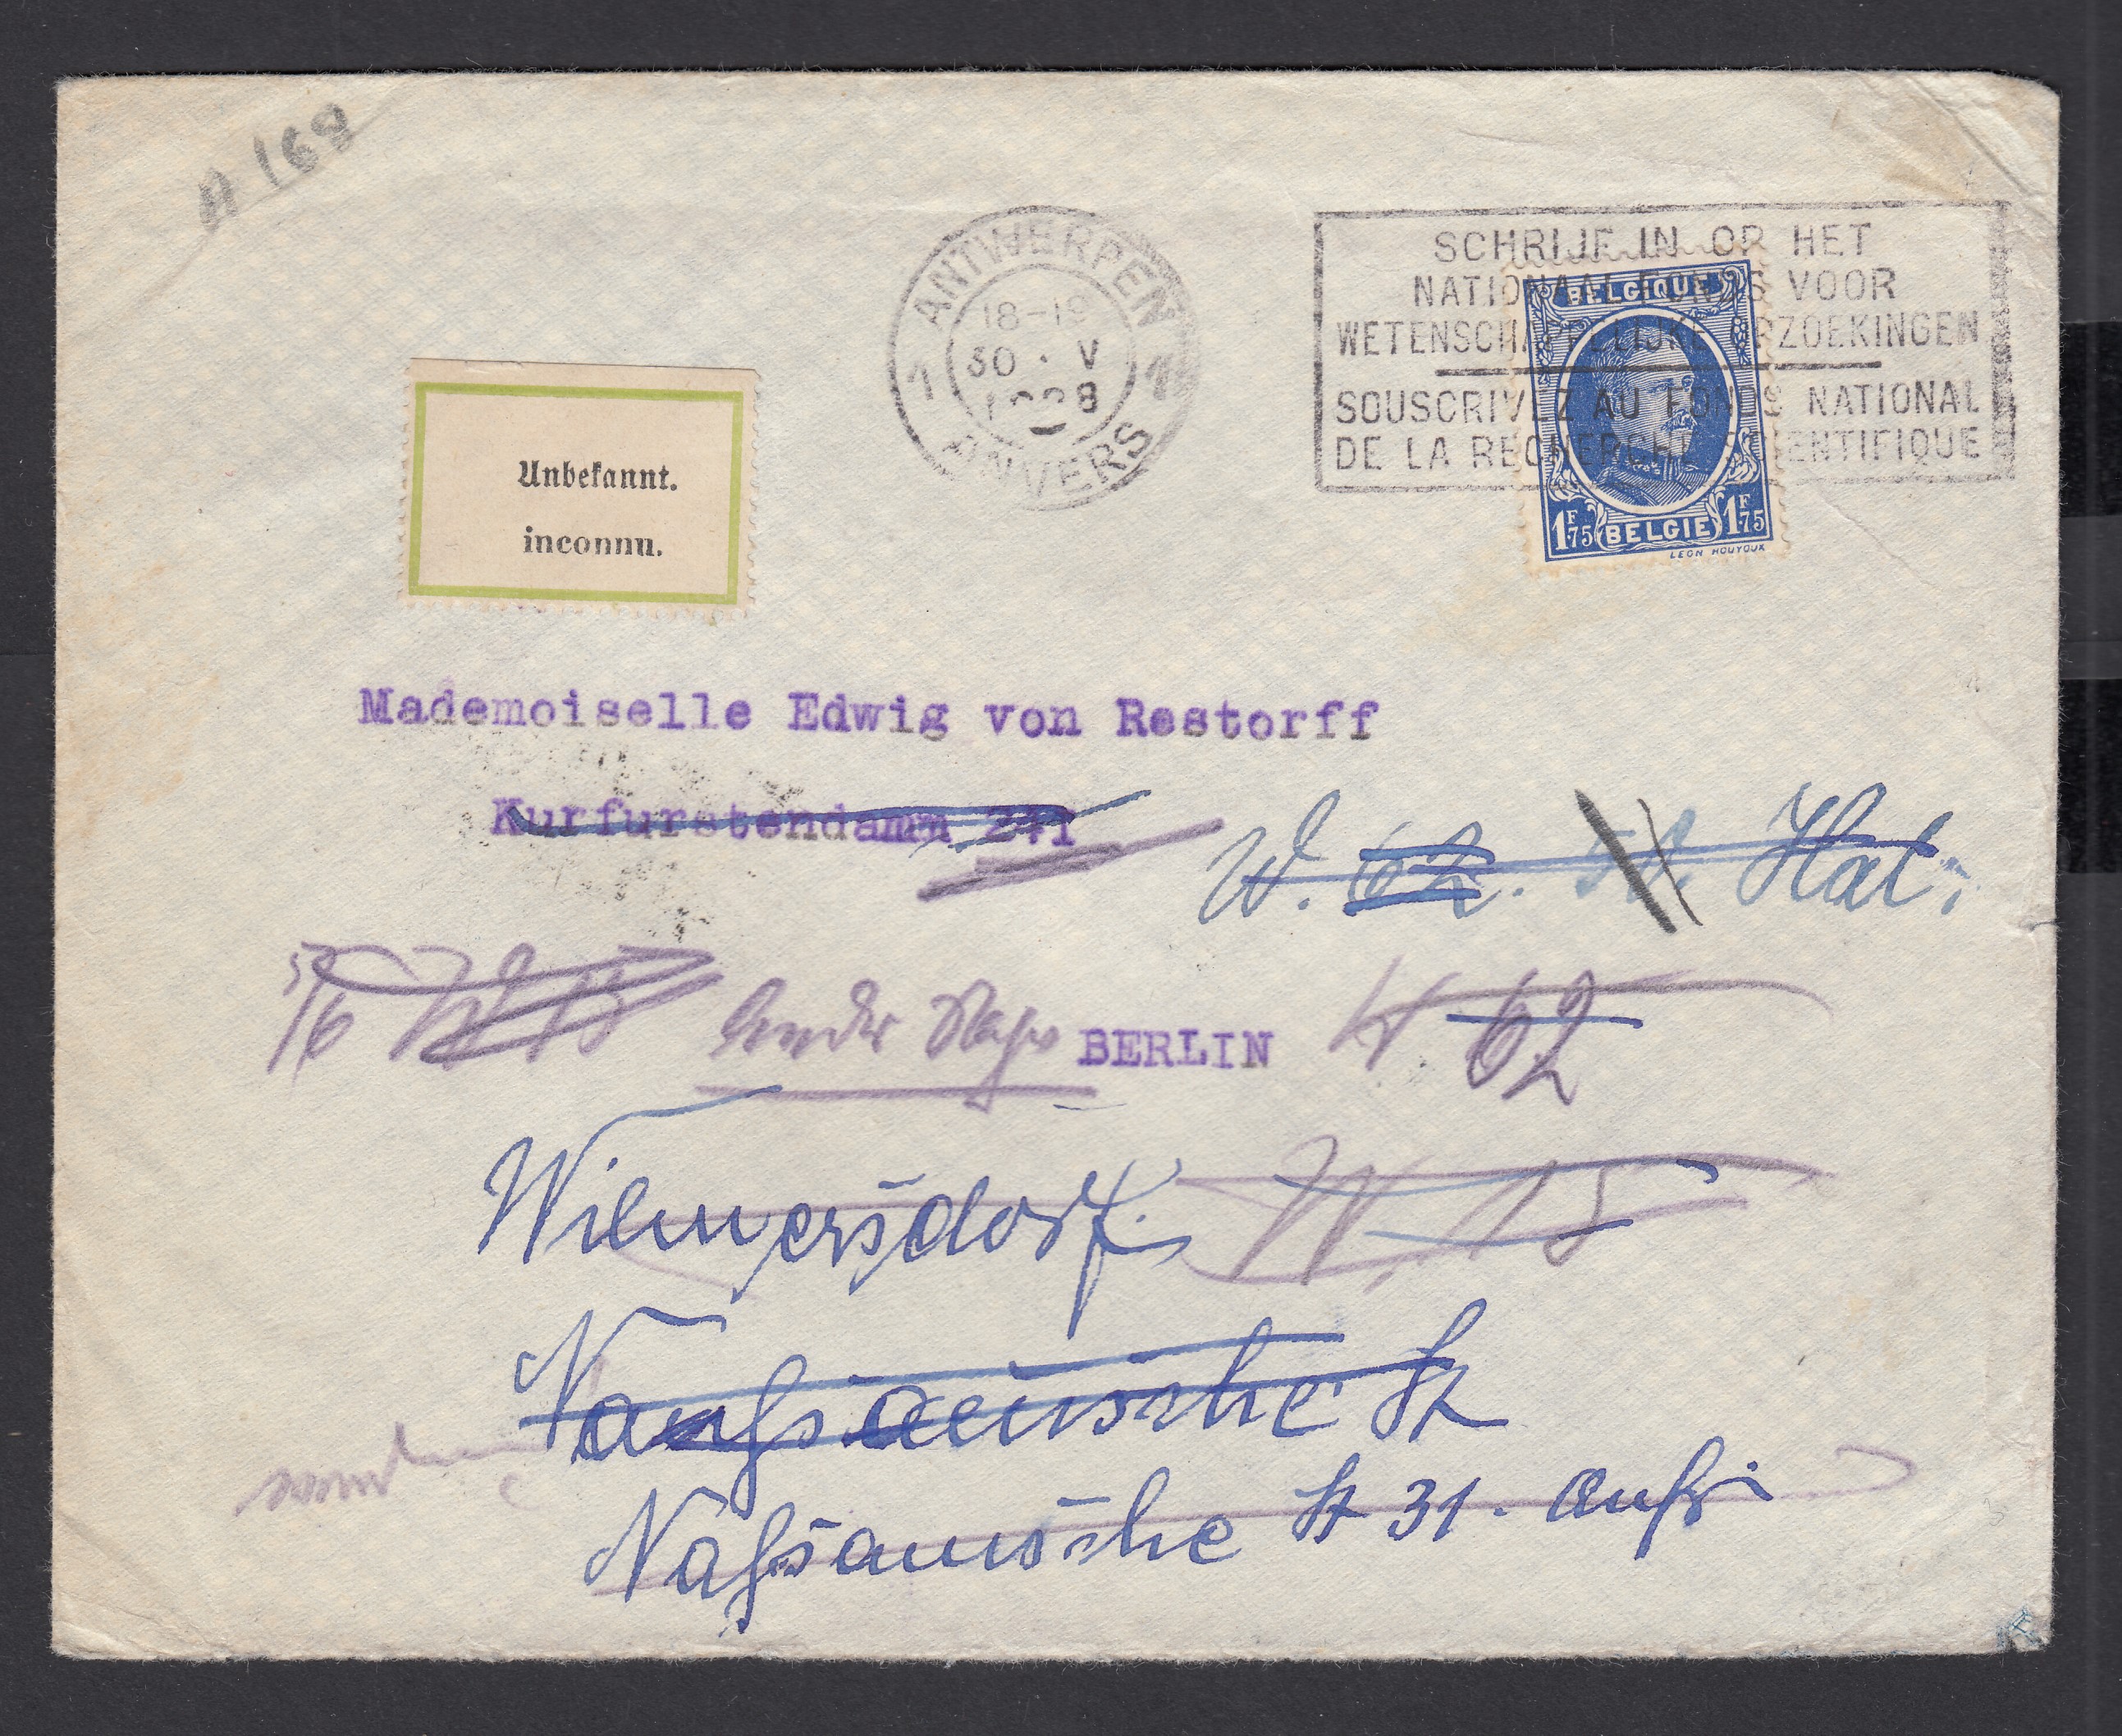 A 168
ANTWERPEN
18-19
30 · V
1928
1 1
ANVERS
SCHRIJF IN OP HET
NATIONAAL FONDS VOOR
WETENSCHAPPELIJKE OPZOEKINGEN
SOUSCRIVEZ AU FONDS NATIONAL
DE LA RECHERCHE SCIENTIFIQUE
BELGIQUE
1F75 BELGIE 1F75
LEON HOUYOUX
Unbekannt.
inconnu.
Mademoiselle Edwig von Restorff
Kurfurstendamm 241
W. 62.
W 15 BERLIN W 62
Wilmersdorf. W. 15
Naßauische St 31.